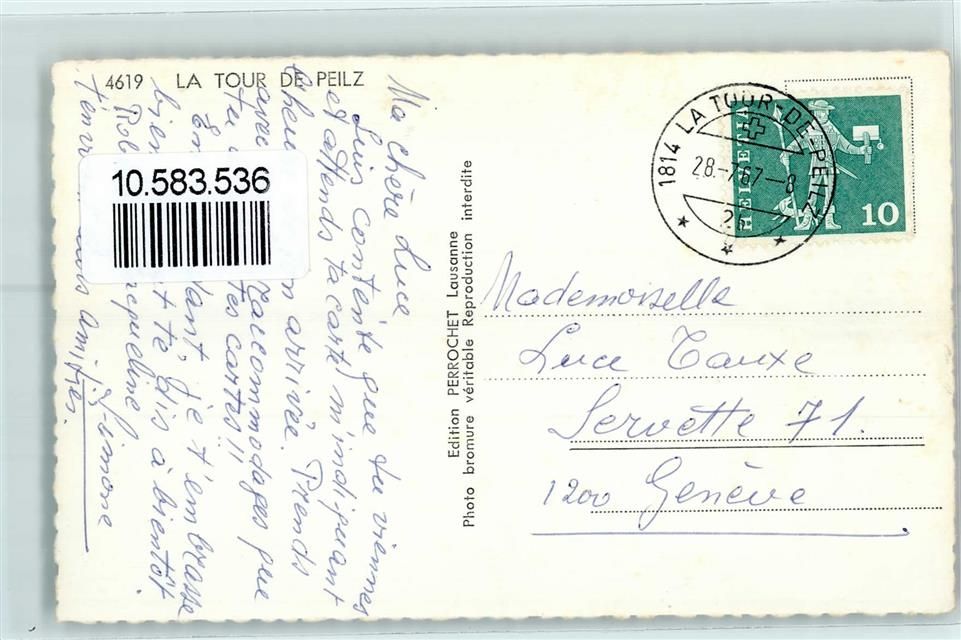 4619 LA TOUR DE PEILZ
Ma chère Luce
Suis contente que tu viennes
et attends ta carte m'indiquant
l'heure arrivée. Prends
avec raccommodages que
tu tes cartes!!
En t'embrasse
bien t te dis à bientôt
Rob
amitiés. Simone
10.583.536
Edition PERROCHET Lausanne
Photo bromure véritable Reproduction interdite
1814 LA TOUR-DE-PEILZ
28.-7.67--8
HELVETIA
10
Mademoiselle
Luce Tauxe
Servette 71.
1200 Genève